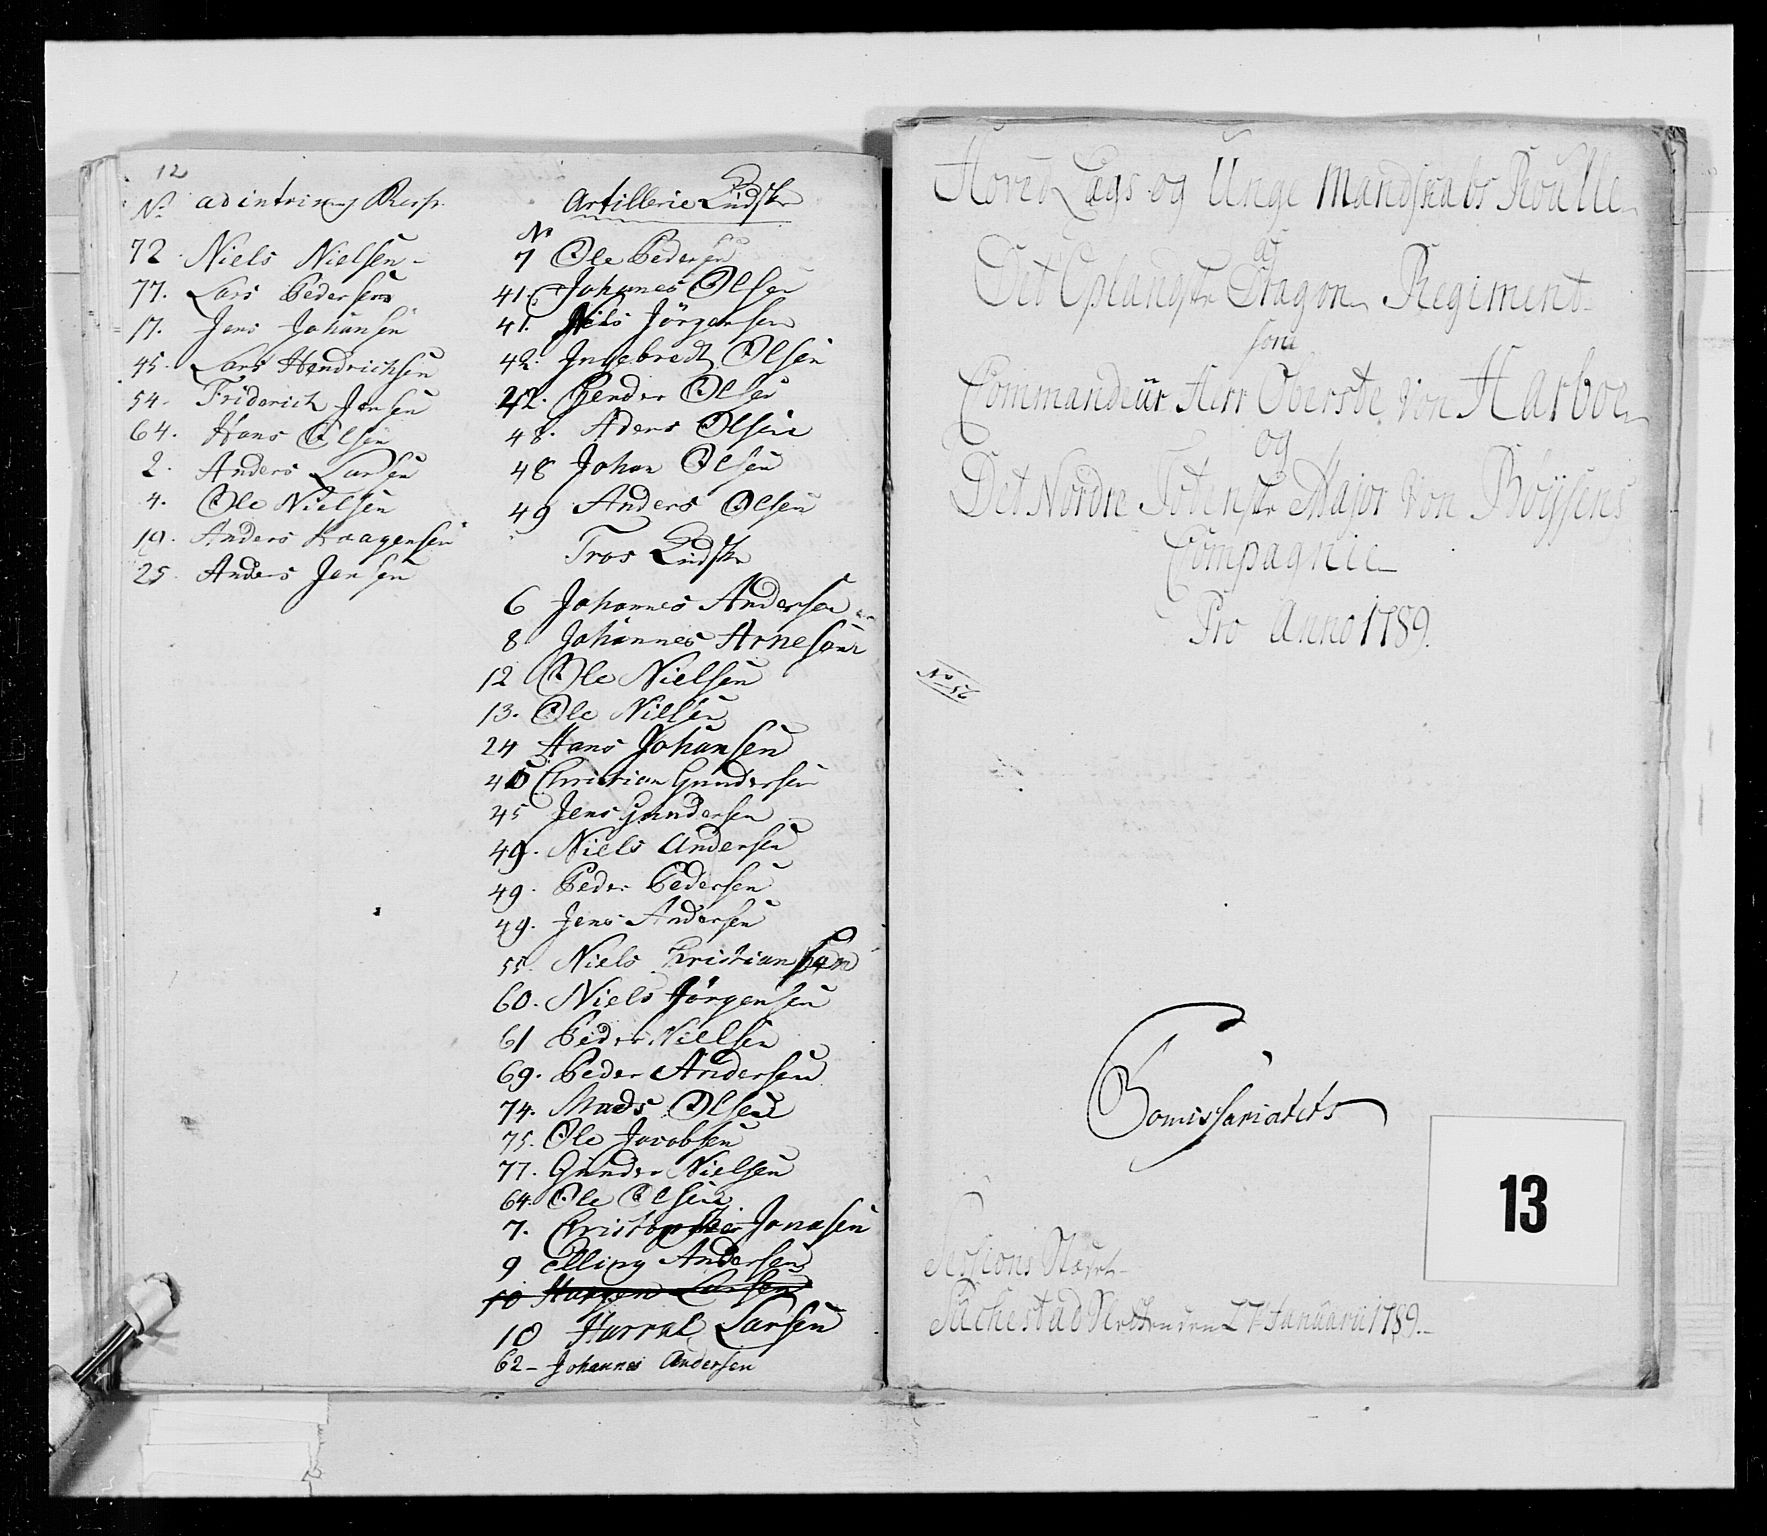 12
No
72. Niels Nielsen
77. Lars Pedersen
17. Jens Johansen
45. Lars Hendrichsen
54. Friderich Jensen
64. Hans Olsen
2. Anders Larsen
4. Ole Nielsen
19. Anders Haagensen
25. Anders Jensen
Artillerie Kudsk
No
7 Ole Pedersen
41. Johanes Olsen
41. Nils Jörgensen
42. Ingebredt Olsen
42. Peder Olsen
48. Aders Olsen
48 Johan Olsen
49 Anders Olsen
Tros Kudsk
6 Johannes Andersen
8 Johannes Arnesen
12 Ole Nielsen
13. Ole Nilsen
24 Hans Johansen
40 Christian Gundersen
45 Jens Gundersen
49. Niels Andersen
49. Peder Pedersen
49. Jens Andersen
55. Niels Cristiansen
60. Niels Jörgensen
61 Peder Nielsen
69. Peder Andersen
74. Mads Olsen
75. Ole Jacobsen
77. Gunder Nielsen
64. Ole Olsen
7. Cristopher Jonasen
9 Elling Andersen
10 Larsen
10 Harral Larsen
62 – Johannes Andersen
Hoved Lægs og Unge Mandskabs Roulle
af
Det Oplandske Dragon Regiment
som
Commandeur Herr Oberste von Harboe
og
Det Nordre Totenske Major von Boysens
Compagnie
Pro Anno 1789.
No 56
Comissariatets
13
Sessions Stædet
den 27 Januarii 1789.